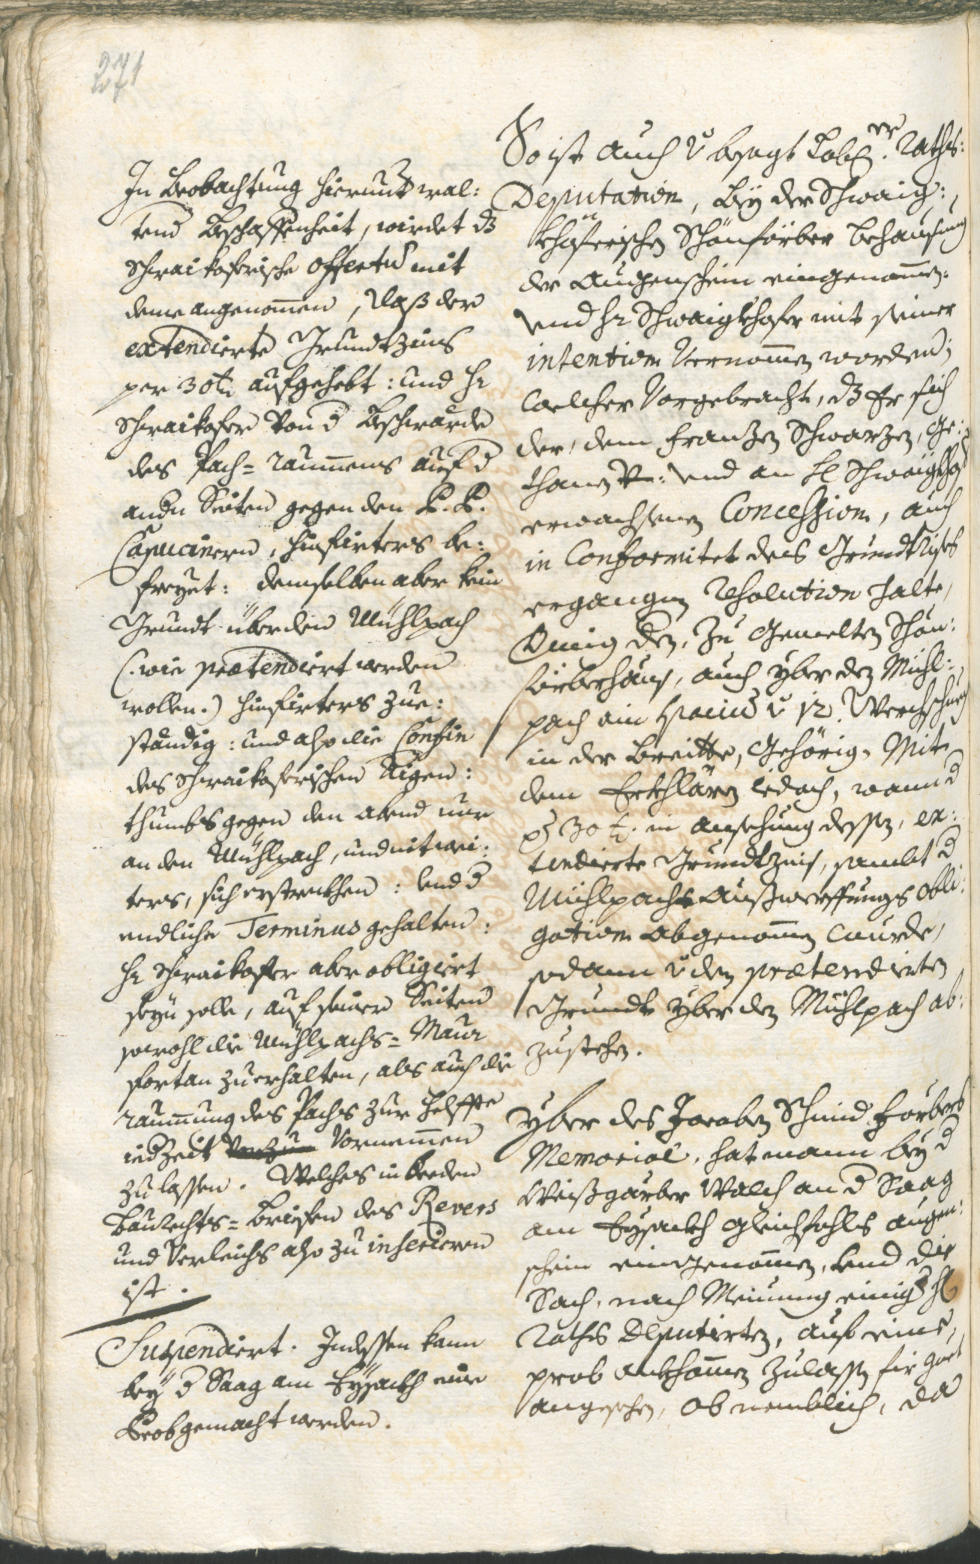 271
In Beobachtung hierundt wal:
tend Beschaffenheit, wirdet dz
Schwaikoferische offertum mit
deme angenomen, daß der
extendierte Grundtzins
per 30 f. aufgehebt: und Hr
Schwaikofer von d Beschwärde
des Pach=raummens auf d
andn Seiten gegen den P. P.
Capucinern, hinfirters be:
freyet: demselben aber kein
Grundt über den Mühlpach
(:wie prætendiert werden
wollen.) hinfirters zue:
ständig: und also die Confin
des Schwaikoferischen Aigen:
thumbs gegen den abend nur
an den Mühlpach, und nit wei:
ters, sich erstreckhen: und d
endliche Terminus gehalten:
Hr Schwaikofer aber obligiert
seyn solle, auf seiner Seiten
sowohl die Mühlpachs=Maur
fortan zuerhalten, als auch die
raummung des Pachs zur helffte
iedzeit vornemmen
zu lassen. Welches in beeden
Baurechts=Briefen des Revers
und Verleichs also zu inserieren
ist.
Suspendiert. Indessen kann
bey d Saag am Eysackh eine
Prob gemacht werden.
So ist auch v besagt Lobl. Raths:
Deputation, bey der Schwaig:
khoferischen Schönförber behausung
der Augenschein eingenommen:
vnd Hr Schwaigkhofer mit seiner
intention vernommen worden;
welcher vorgebracht, dz Er sich
der, dem Frantzen Schwartzen, ge:
thanen vnd an H Schwaigkhof
erwachsenen Concession, auch
in Conformitet des Grundtrises
ergangnen Resolution halte,
Craft den, zu gemelten Schön:
förberhaus, auch yber den Mihl:
pach ain spacium v 12. Werchschuech
in der Breitte, gehörig. Mit
dem Erkhlären iedoch, wann d
p 30 f. in ansehung dessen, ex:
tendierte Grundtzins, sambt d
Mühlpachs Außwerffungs obli:
gation abgenommen wurde,
sodann v den prætendierten
Grundt yber den Mühlpach ab:
zustehen.
Yber des Jacoben Schmid Förbers
Memorial, hat mann bey d
Weißgärber Walch an d Saag
am Eysackh gleichfahls augen:
schein eingenommen, vnd die
Sach, nach Meinung einiger H
Raths Deputierten, auf eine
prob ankhommen zulassen für guet
angesehen, ob nemblich, da